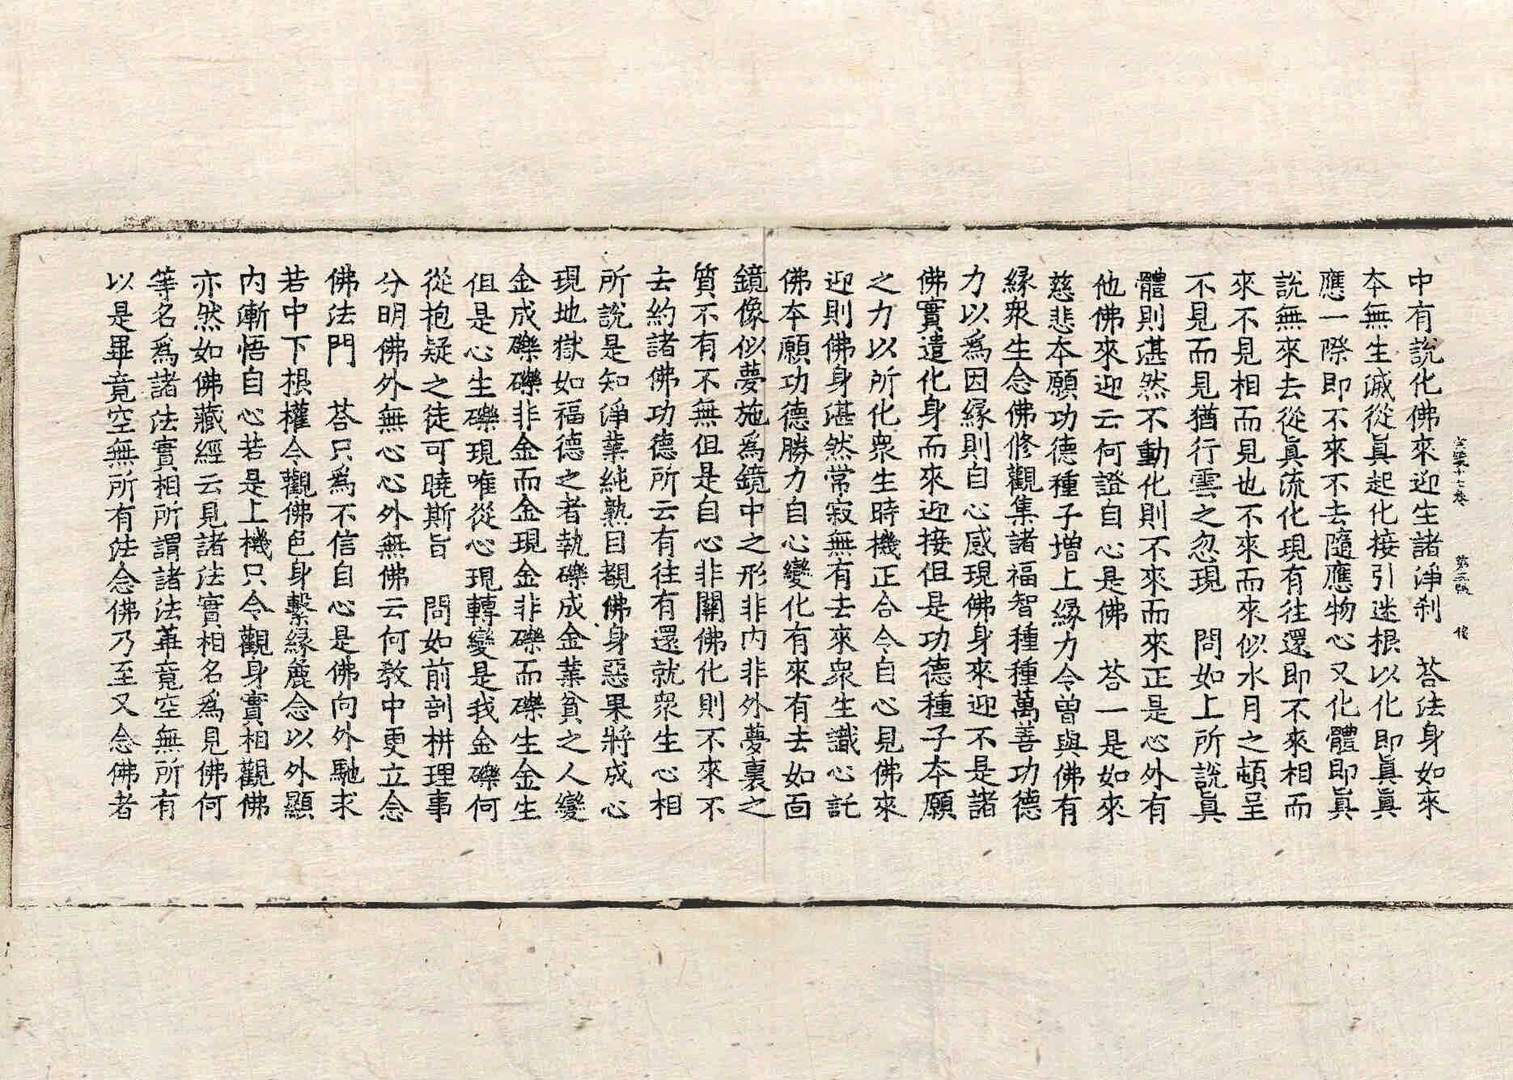 宗鏡第十七卷　第三張　俊
中有說化佛來迎生諸淨刹　荅法身如來
本無生滅從眞起化接引迷根以化即眞眞
應一際即不來不去隨應物心又化體即眞
說無來去從眞流化現有往還即不來相而
來不見相而見也不來而來似水月之頓呈
不見而見猶行雲之忽現　問如上所說眞
體則湛然不動化則不來而來正是心外有
他佛來迎云何證自心是佛　荅一是如來
慈悲本願功德種子增上緣力令曾與佛有
緣衆生念佛修觀集諸福智種種萬善功德
力以爲因緣則自心感現佛身來迎不是諸
佛實遣化身而來迎接但是功德種子本願
之力以所化衆生時機正合令自心見佛來
迎則佛身湛然常寂無有去來衆生識心託
佛本願功德勝力自心變化有來有去如面
鏡像似夢施爲鏡中之形非內非外夢裏之
質不有不無但是自心非關佛化則不來不
去約諸佛功德所云有往有還就衆生心相
所說是知淨業純熟目覩佛身惡果將成心
現地獄如福德之者執礫成金業貧之人變
金成礫礫非金而金現金非礫而礫生金生
但是心生礫現唯從心現轉變是我金礫何
從抱疑之徒可曉斯旨　問如前剖析理事
分明佛外無心心外無佛云何教中更立念
佛法門　荅只爲不信自心是佛向外馳求
若中下根權令觀佛色身繫緣麁念以外顯
內漸悟自心若是上機只令觀身實相觀佛
亦然如佛藏經云見諸法實相名爲見佛何
等名爲諸法實相所謂諸法畢竟空無所有
以是畢竟空無所有法念佛乃至又念佛者